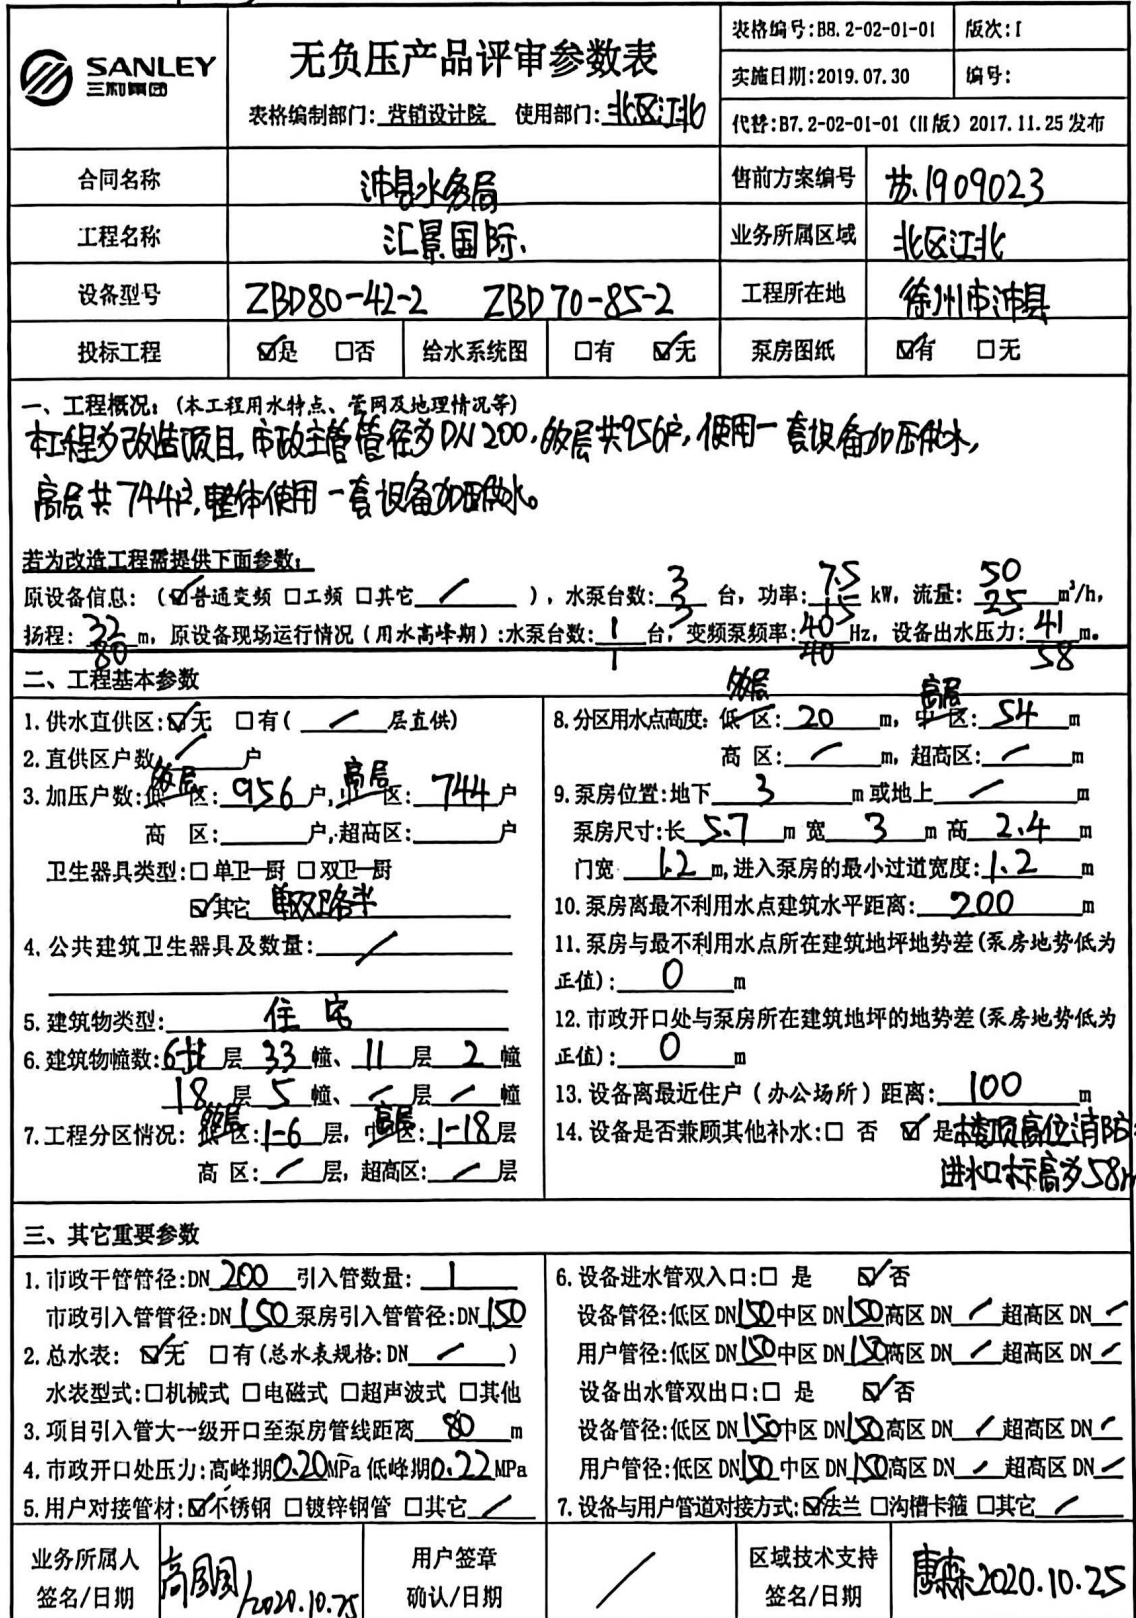 SANLEY
三利集团
无负压产品评审参数表
表格编制部门: 营销设计院 使用部门: 北区江北
表格编号:BB.2-02-01-01 版次:I
实施日期:2019.07.30 编号:
代替:B7.2-02-01-01 (II版) 2017.11.25 发布
合同名称 沛县水务局 售前方案编号 苏.1909023
工程名称 汇景国际、 业务所属区域 北区江北
设备型号 ZBD80-42-2 ZBD70-85-2 工程所在地 徐州市沛县
投标工程 ☑是 □否 给水系统图 □有 ☑无 泵房图纸 ☑有 □无
一、工程概况: (本工程用水特点、管网及地理情况等)
本工程为改造项目,市政主管管径为DN200,多层共956户,使用一套设备加压供水,
高层共744户,整体使用一套设备加压供水。
若为改造工程需提供下面参数:
原设备信息: (☑普通变频 □工频 □其它 / ), 水泵台数: 3 3 台, 功率: 7.5 15 kW, 流量: 50 25 m³/h,
扬程: 32 80 m, 原设备现场运行情况 (用水高峰期) :水泵台数: 1 1 台, 变频泵频率: 40 40 Hz, 设备出水压力: 41 58 m。
二、工程基本参数
1. 供水直供区: ☑无 □有( / 层直供)
2. 直供区户数 / 户
3. 加压户数: 多层 区: 956 户, 高层 区: 744 户
高 区: 户, 超高区: 户
卫生器具类型: □单卫一厨 □双卫一厨
☑其它 单双卫各半
4. 公共建筑卫生器具及数量: /
5. 建筑物类型: 住宅
6. 建筑物幢数: 6+1 层 33 幢、 11 层 2 幢
18 层 5 幢、 / 层 / 幢
7. 工程分区情况: 多层 区: 1-6 层, 高层 区: 1-18 层
高 区: / 层, 超高区: / 层
8. 分区用水点高度: 多层 低 区: 20 m, 高层 中 区: 54 m
高 区: / m, 超高区: / m
9. 泵房位置:地下 3 m 或地上 / m
泵房尺寸:长 5.7 m 宽 3 m 高 2.4 m
门宽 1.2 m, 进入泵房的最小过道宽度: 1.2 m
10. 泵房离最不利用水点建筑水平距离: 200 m
11. 泵房与最不利用水点所在建筑地坪地势差(泵房地势低为
正值): 0 m
12. 市政开口处与泵房所在建筑地坪的地势差(泵房地势低为
正值): 0 m
13. 设备离最近住户 (办公场所) 距离: 100 m
14. 设备是否兼顾其他补水: □ 否 ☑ 是 楼顶高位消防
进水口标高为58m
三、其它重要参数
1. 市政干管管径:DN 200 引入管数量: 1
市政引入管管径:DN 150 泵房引入管管径:DN 150
2. 总水表: ☑无 □有(总水表规格:DN / )
水表型式:□机械式 □电磁式 □超声波式 □其他
3. 项目引入管大一级开口至泵房管线距离 80 m
4. 市政开口处压力:高峰期 0.20 MPa 低峰期 0.22 MPa
5. 用户对接管材: ☑不锈钢 □镀锌钢管 □其它 /
6. 设备进水管双入口: □ 是 ☑否
设备管径:低区 DN 150 中区 DN 150 高区 DN / 超高区 DN /
用户管径:低区 DN 150 中区 DN 150 高区 DN / 超高区 DN /
设备出水管双出口: □ 是 ☑否
设备管径:低区 DN 150 中区 DN 150 高区 DN / 超高区 DN /
用户管径:低区 DN 150 中区 DN 150 高区 DN / 超高区 DN /
7. 设备与用户管道对接方式: ☑法兰 □沟槽卡箍 □其它 /
业务所属人 签名/日期 高凤凤/2020.10.25 用户签章 确认/日期 / 区域技术支持 签名/日期 唐森2020.10.25